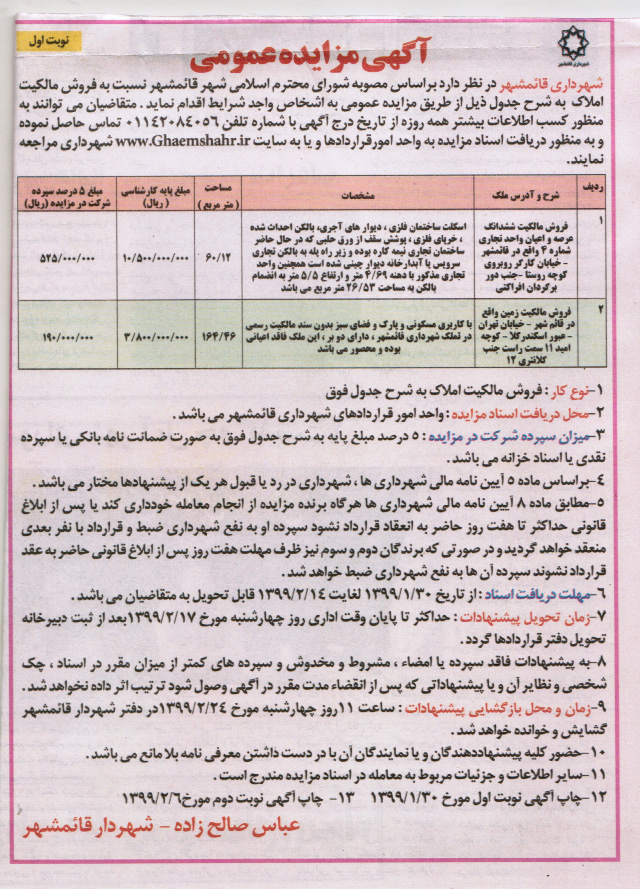 نوبت اول
شهرداری قائمشهر
آگهی مزایده عمومی
شهرداری قائمشهر در نظر دارد براساس مصوبه شورای محترم اسلامی شهر قائمشهر نسبت به فروش مالکیت
املاک به شرح جدول ذیل از طریق مزایده عمومی به اشخاص واجد شرایط اقدام نماید . متقاضیان می توانند به
منظور کسب اطلاعات بیشتر همه روزه از تاریخ درج آگهی با شماره تلفن ۰۱۱۴۲۰۸۴۰۵۶ تماس حاصل نموده
و به منظور دریافت اسناد مزایده به واحد امورقراردادها و یا به سایت www.Ghaemshahr.ir شهرداری مراجعه
نمایند.
ردیف
شرح و آدرس ملک
مشخصات
مساحت
( متر مربع )
مبلغ پایه کارشناسی
(ریال)
مبلغ ۵ درصد سپرده
شرکت در مزایده (ریال)
۱
فروش مالکیت ششدانگ
عرصه و اعیان واحد تجاری
شماره ۴ واقع در قائمشهر
- خیابان کارگر روبروی
کوچه روستا - جنب دور
برگردان افراکتی
اسکلت ساختمان فلزی ، دیوار های آجری، بالکن احداث شده
، خرپای فلزی ، پوشش سقف از ورق حلبی که در حال حاضر
ساختمان تجاری نیمه کاره بوده و زیر راه پله به بالکن تجاری
سرویس یا آبدارخانه دیوار چینی شده است همچنین واحد
تجاری مذکور با دهنه ۴/۶۹ متر و ارتفاع ۵/۵ متر به انضمام
بالکن به مساحت ۲۶/۵۳ متر مربع می باشد
۶۰/۱۲
۱۰/۵۰۰/۰۰۰/۰۰۰
۵۲۵/۰۰۰/۰۰۰
۲
فروش مالکیت زمین واقع
در قائم شهر - خیابان تهران
- عبور اسکندرکلا - کوچه
امید ۱۱ سمت راست جنب
کلانتری ۱۲
با کاربری مسکونی و پارک و فضای سبز بدون سند مالکیت رسمی
در تملک شهرداری قائمشهر ، دارای دو بر ، این ملک فاقد اعیانی
بوده و محصور می باشد
۱۶۴/۴۶
۳/۸۰۰/۰۰۰/۰۰۰
۱۹۰/۰۰۰/۰۰۰
۱-نوع کار : فروش مالکیت املاک به شرح جدول فوق
۲-محل دریافت اسناد مزایده : واحد امور قراردادهای شهرداری قائمشهر می باشد .
۳-میزان سپرده شرکت در مزایده : ۵ درصد مبلغ پایه به شرح جدول فوق به صورت ضمانت نامه بانکی یا سپرده
نقدی یا اسناد خزانه می باشد .
۴-براساس ماده ۵ آیین نامه مالی شهرداری ها ، شهرداری در رد یا قبول هر یک از پیشنهادها مختار می باشد .
۵-مطابق ماده ۸ آیین نامه مالی شهرداری ها هرگاه برنده مزایده از انجام معامله خودداری کند یا پس از ابلاغ
قانونی حداکثر تا هفت روز حاضر به انعقاد قرارداد نشود سپرده او به نفع شهرداری ضبط و قرارداد با نفر بعدی
منعقد خواهد گردید و در صورتی که برندگان دوم و سوم نیز ظرف مهلت هفت روز پس از ابلاغ قانونی حاضر به عقد
قرارداد نشوند سپرده آن ها به نفع شهرداری ضبط خواهد شد .
۶-مهلت دریافت اسناد : از تاریخ ۱۳۹۹/۱/۳۰ لغایت ۱۳۹۹/۲/۱۴ قابل تحویل به متقاضیان می باشد .
۷-زمان تحویل پیشنهادات : حداکثر تا پایان وقت اداری روز چهارشنبه مورخ ۱۳۹۹/۲/۱۷بعد از ثبت دبیرخانه
تحویل دفتر قراردادها گردد .
۸-به پیشنهادات فاقد سپرده یا امضاء ، مشروط و مخدوش و سپرده های کمتر از میزان مقرر در اسناد ، چک
شخصی و نظایر آن و یا پیشنهاداتی که پس از انقضاء مدت مقرر در آگهی وصول شود ترتیب اثر داده نخواهد شد .
۹-زمان و محل بازگشایی پیشنهادات : ساعت ۱۱روز چهارشنبه مورخ ۱۳۹۹/۲/۲۴در دفتر شهردار قائمشهر
گشایش و خوانده خواهد شد .
۱۰-حضور کلیه پیشنهاددهندگان و یا نمایندگان آن با در دست داشتن معرفی نامه بلا مانع می باشد .
۱۱-سایر اطلاعات و جزئیات مربوط به معامله در اسناد مزایده مندرج است .
۱۲-چاپ آگهی نوبت اول مورخ ۱۳۹۹/۱/۳۰ ۱۳- چاپ آگهی نوبت دوم مورخ۱۳۹۹/۲/۶
عباس صالح زاده - شهردار قائمشهر